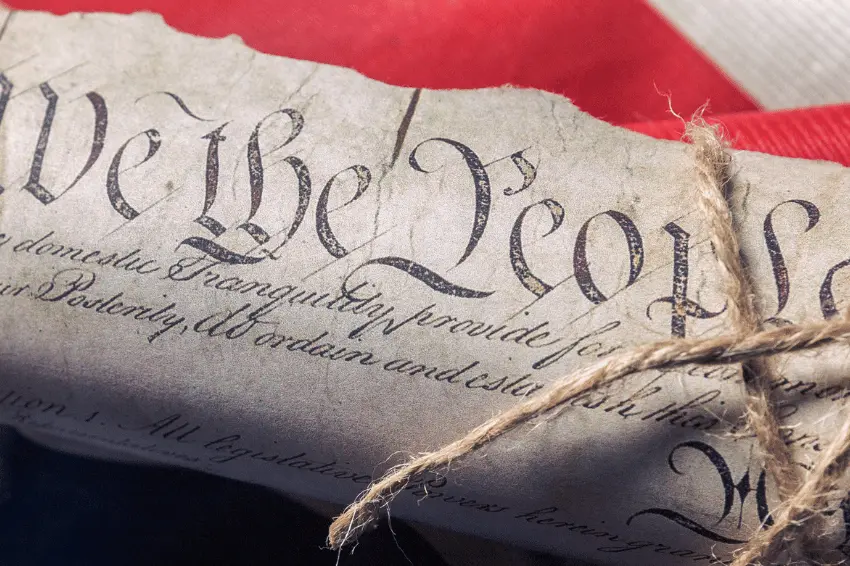 We the People
domestic Tranquility, provide for
Posterity, do ordain and establish this
tion. 1. All legislative Powers herein gran